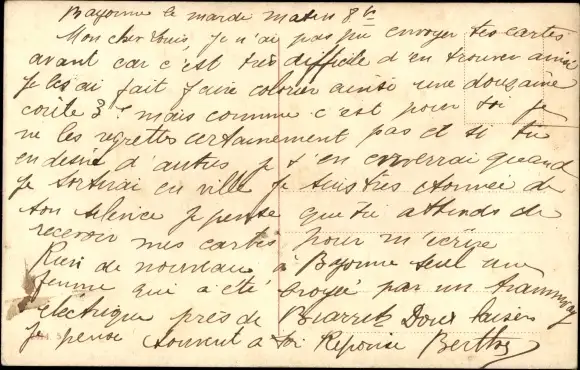 Bayonne le mardi matin 8h
Mon cher Louis je n'ai pas pu envoyer tes cartes
avant car c'est très difficile d'en trouver ainsi
je les ai fait faire colorier ainsi une douzaine
coûte 3f mais comme c'est pour toi je
ne les regrettes certainement pas et si tu
en desire d'autres je t'en enverrai quand
je sortirai en ville je suis très etonnée de
ton silence je pense que tu attends de
recevoir mes cartes pour m'ecrire
Rien de nouveau à Bayonne seul une
femme qui a été broyée par un tramway
électrique près de Biarrit Doux baisers
je pense souvent a toi Reponse Berthe